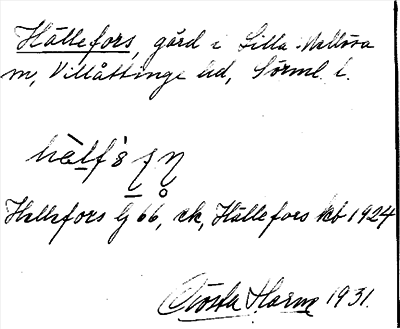 Hällefors, gård i Lilla Mellösa
sn, Villåttinge hd, Sörml. l.
Hellefors Lj 66, ek, Hällefors kb 1924
Gösta Harm 1931.